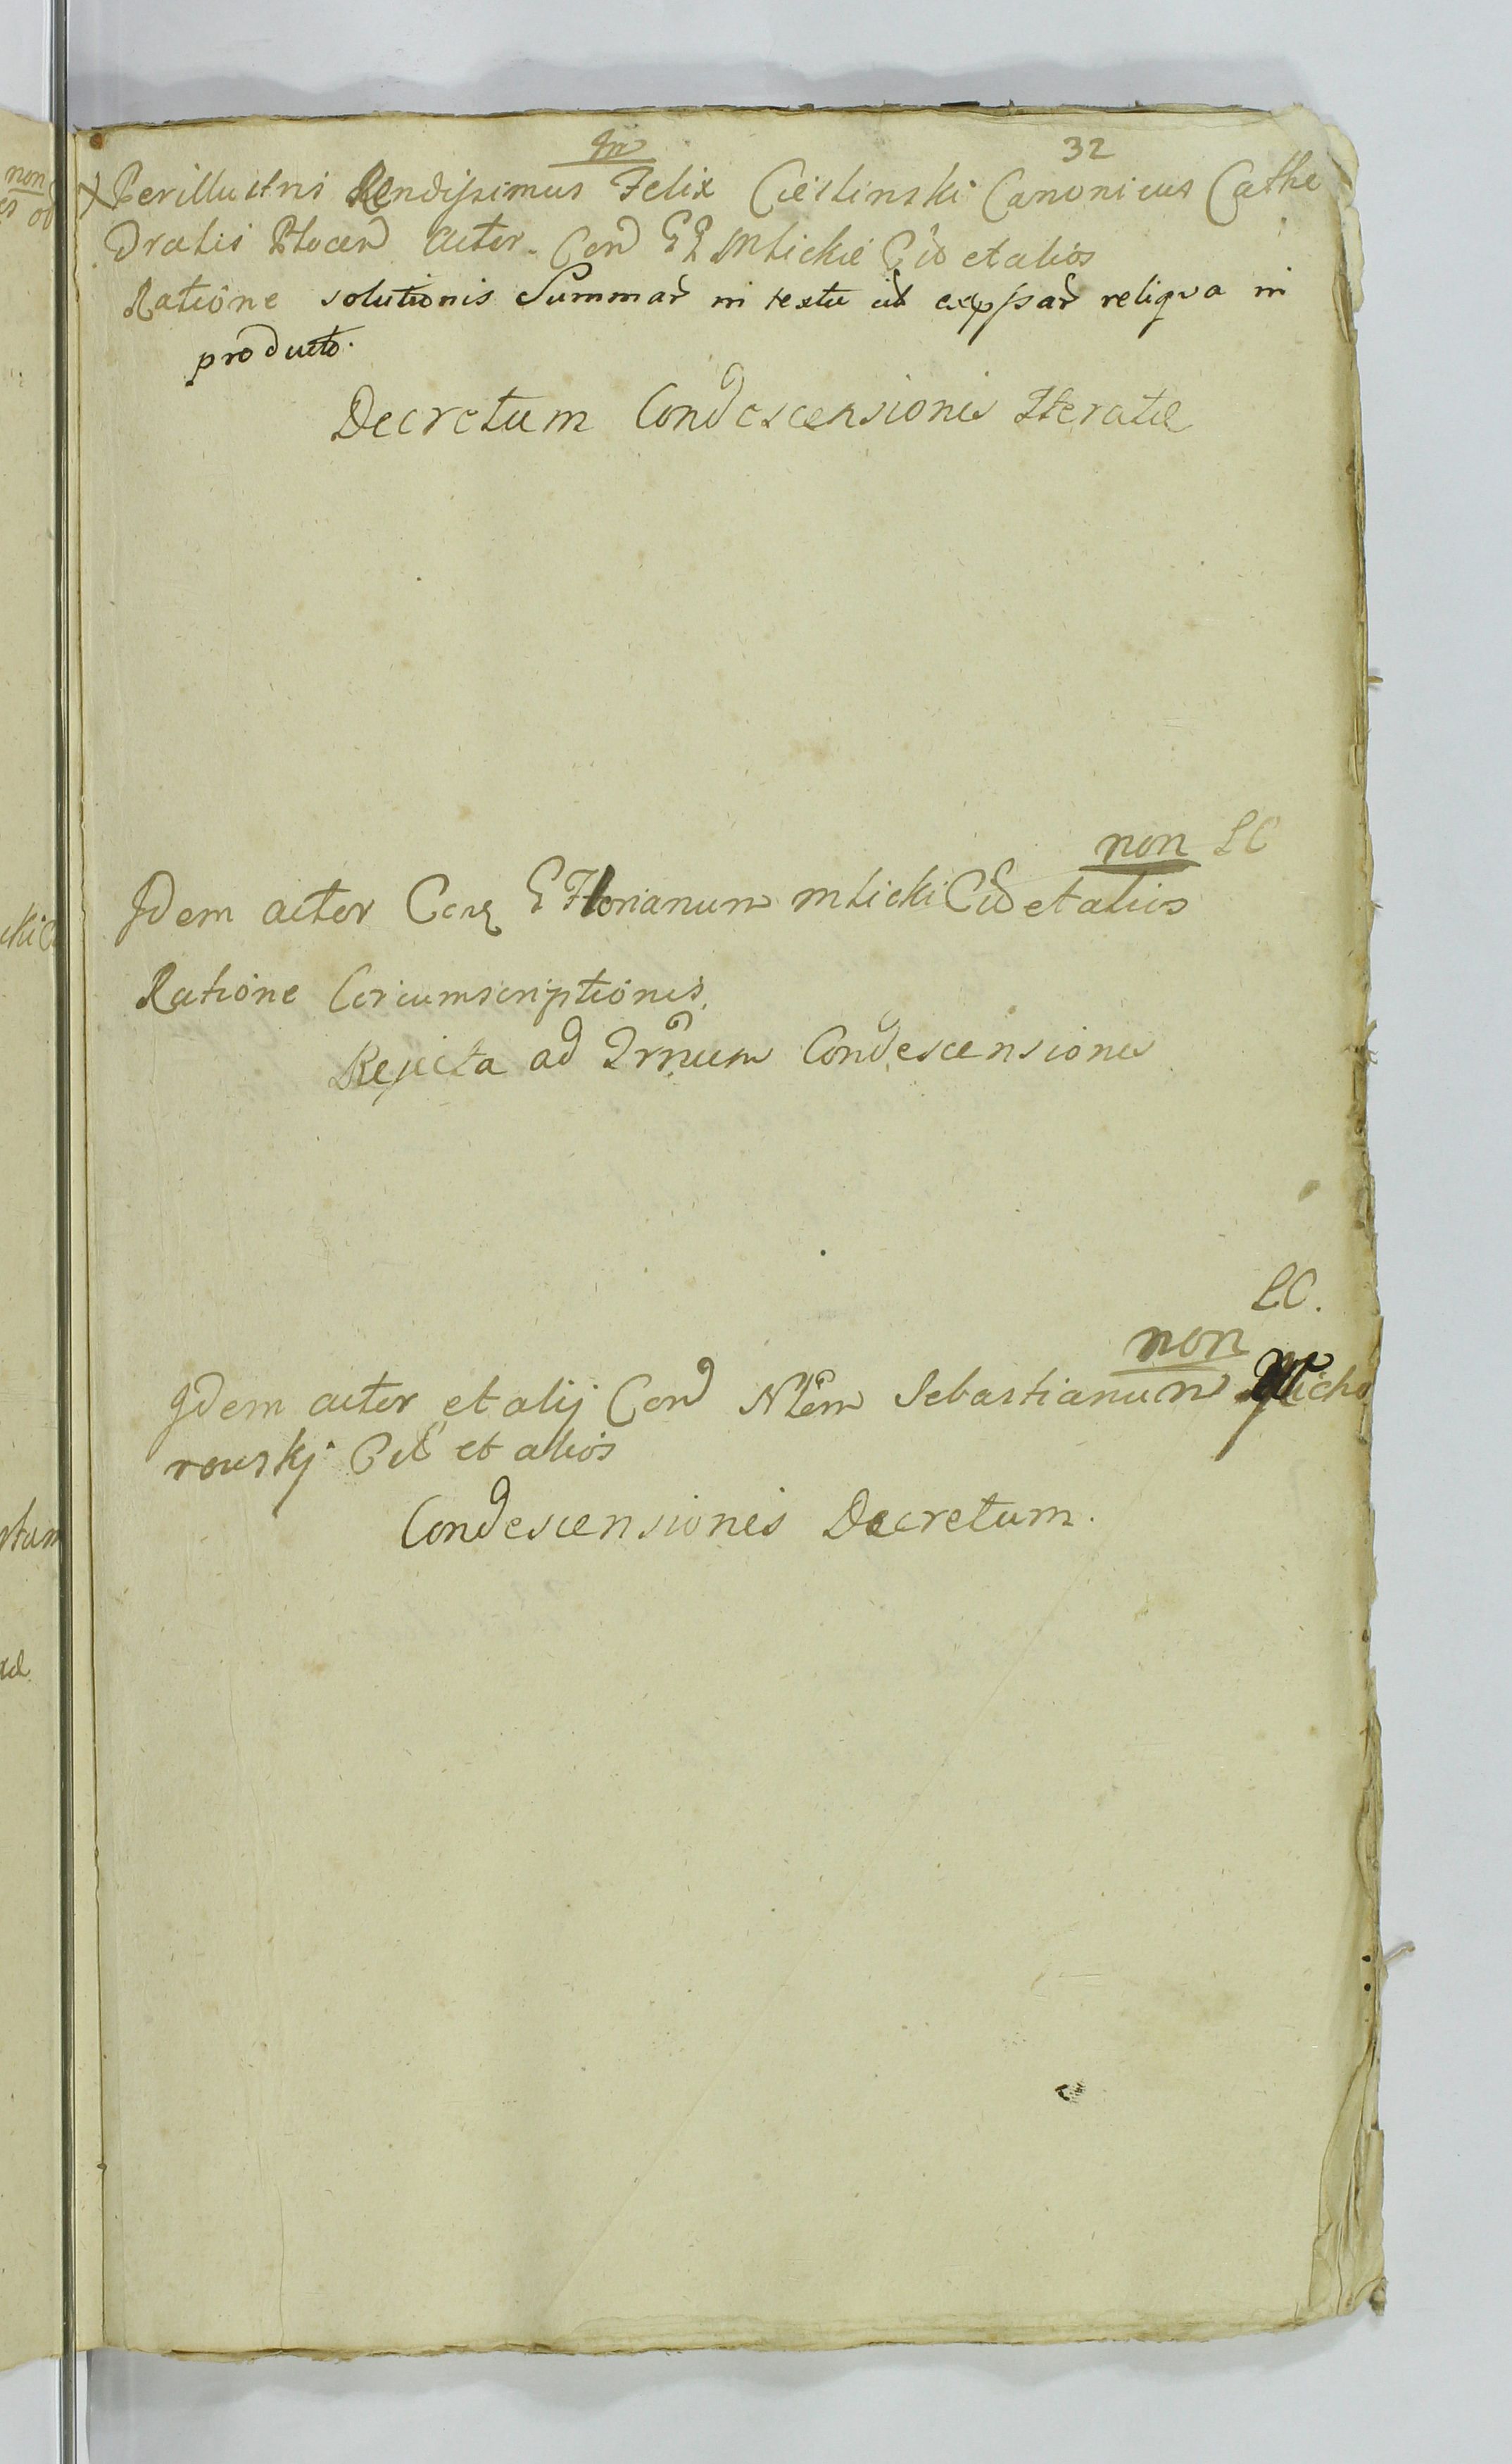 32
Perillustris Rendissimus Felix Cieslinski Canonicus Cathe
dralis Plocen Actor Con GG Mlickie Cit et alios
Ratione solutionis Summar in textu ut reliqva in
producto.
Decretum Condescensionis Iteratae
non LC
Idem actor Con G Florianum Mlicki Cit et alios
Ratione Circumscriptionis
Rejecta ad Condescensionis
LC.
non
Idem actor et alij Con Sebastianum
rowskj Cit et alios
Condescensionis Decretum.
non